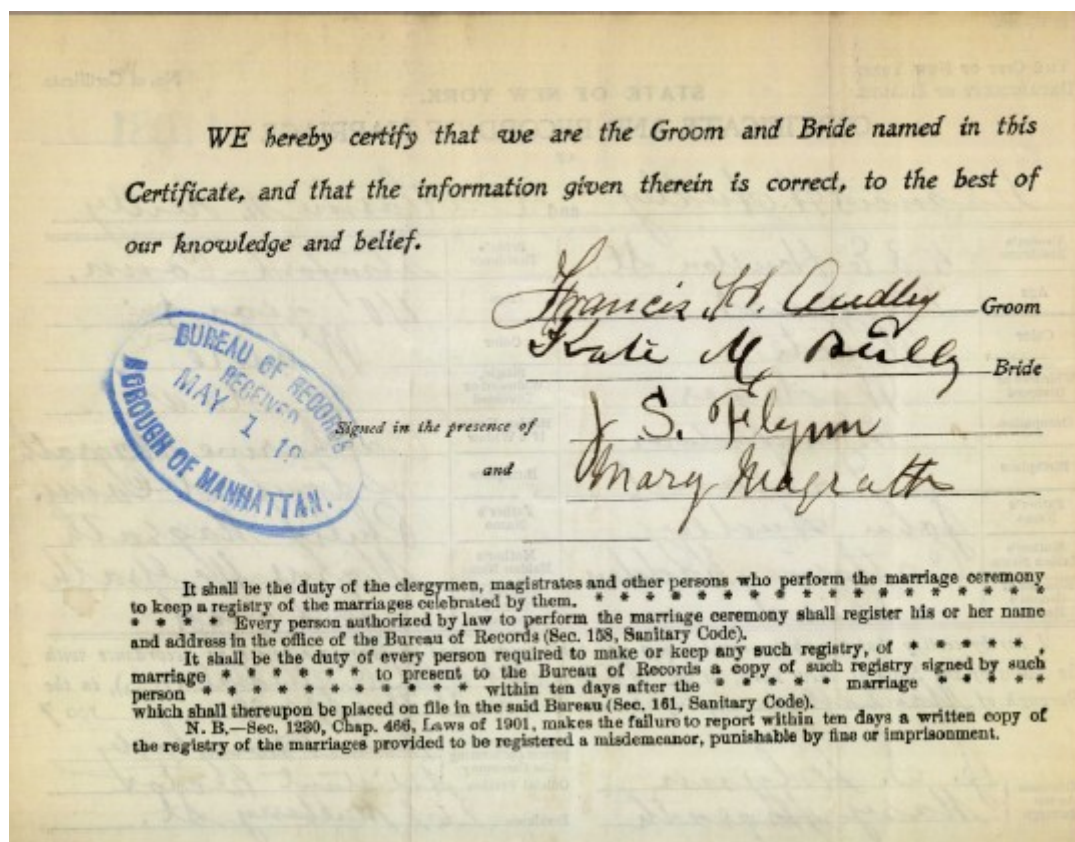 STATE OF NEW YORK.
WE hereby certify that we are the Groom and Bride named in this
Certificate, and that the information given therein is correct, to the best of
our knowledge and belief.
Francis H. Audley Groom
Kate M Bully Bride
BUREAU OF RECORDS
RECEIVED
MAY 1 19
BOROUGH OF MANHATTAN.
Signed in the presence of J S. Flynn
and Mary Magrath
It shall be the duty of the clergymen, magistrates and other persons who perform the marriage ceremony
to keep a registry of the marriages celebrated by them. * * * * * * * * * * * * * * *
* * * * Every person authorized by law to perform the marriage ceremony shall register his or her name
and address in the office of the Bureau of Records (Sec. 158, Sanitary Code).
It shall be the duty of every person required to make or keep any such registry, of * * * * * ,
marriage * * * * * * to present to the Bureau of Records a copy of such registry signed by such
person * * * * * * * * * * within ten days after the * * * * * marriage * * * * *
which shall thereupon be placed on file in the said Bureau (Sec. 161, Sanitary Code).
N. B.—Sec. 1230, Chap. 466, Laws of 1901, makes the failure to report within ten days a written copy of
the registry of the marriages provided to be registered a misdemeanor, punishable by fine or imprisonment.